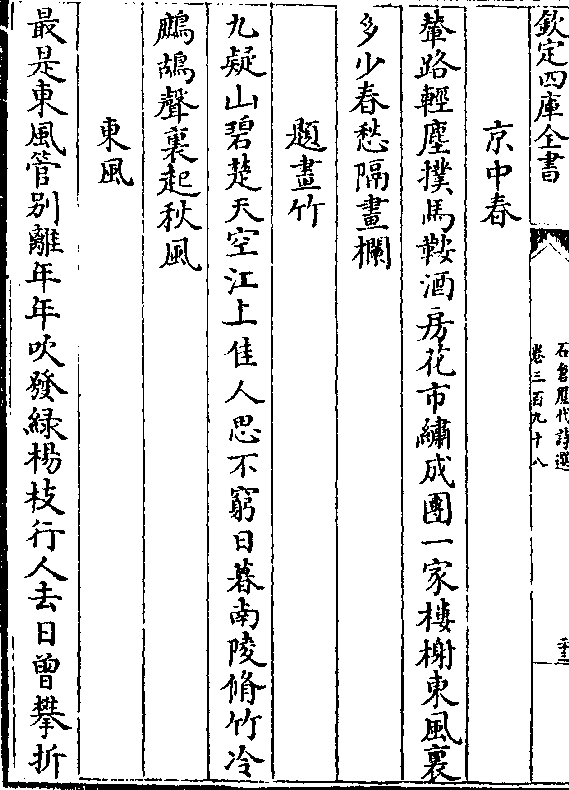 欽定四庫全書
石倉歷代詩選
卷三百九十八
京中春
輦路輕塵撲馬鞍酒房花市繡成團一家樓榭東風裏
多少春愁隔畫欄
題畫竹
九疑山碧楚天空江上佳人思不窮日暮南陵脩竹冷
鷓鴣聲裏起秋風
東風
最是東風管别離年年吹發緑楊枝行人去日曾攀折